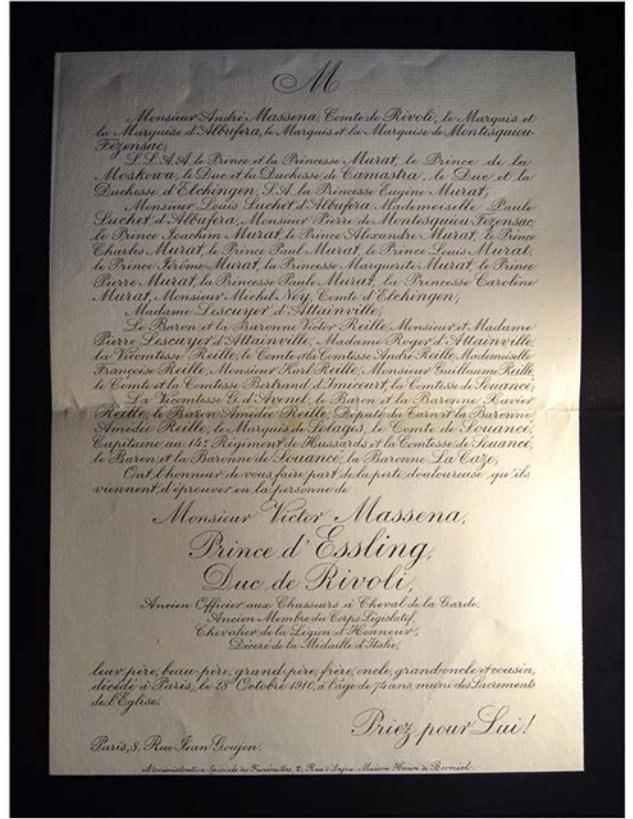 M
Monsieur André Massena, Comte de Rivoli, le Marquis et
la Marquise d'Albufera, le Marquis et la Marquise de Montesquiou-
Fézensac;
L.L.A.A. le Prince et la Princesse Murat, le Prince de la
Moskowa, le Duc et la Duchesse de Camastra, le Duc et la
Duchesse d'Elchingen, S.A. la Princesse Eugène Murat;
Monsieur Louis Suchet d'Albufera, Mademoiselle Paule
Suchet d'Albufera, Monsieur Pierre de Montesquiou-Fézensac,
le Prince Joachim Murat, le Prince Alexandre Murat, le Prince
Charles Murat, le Prince Paul Murat, le Prince Louis Murat,
le Prince Jérôme Murat, la Princesse Marguerite Murat, le Prince
Pierre Murat, la Princesse Paule Murat, la Princesse Caroline
Murat, Monsieur Michel Ney, Comte d'Elchingen;
Madame Lescuyer d'Attainville;
Le Baron et la Baronne Victor Reille, Monsieur et Madame
Pierre Lescuyer d'Attainville, Madame Roger d'Attainville,
la Vicomtesse Reille, le Comte et la Comtesse André Reille, Mademoiselle
Françoise Reille, Monsieur Karl Reille, Monsieur Guillaume Reille,
le Comte et la Comtesse Bertrand d'Imécourt, la Comtesse de Souancé;
La Vicomtesse G. d'Avenel, le Baron et la Baronne Xavier
Reille, le Baron Amédée Reille, Député du Tarn et la Baronne
Amédée Reille, le Marquis de Solages, le Comte de Souancé,
Capitaine au 14e Régiment de Hussards et la Comtesse de Souancé,
le Baron et la Baronne de Souancé, la Baronne La Caze;
Ont l'honneur de vous faire part de la perte douloureuse qu'ils
viennent d'éprouver en la personne de
Monsieur Victor Massena,
Prince d'Essling,
Duc de Rivoli,
Ancien Officier aux Chasseurs à Cheval de la Garde,
Ancien Membre du Corps Législatif,
Chevalier de la Légion d'Honneur,
Décoré de la Médaille d'Italie,
leur père, beau-père, grand-père, frère, oncle, grand-oncle et cousin,
décédé à Paris, le 28 Octobre 1910, à l'âge de 74 ans, muni des Sacrements
de l'Eglise.
Priez pour Lui!
Paris, 8, Rue Jean Goujon.
Administration Spéciale des Funérailles, Rue d'Anjou. Maison Henri de Borniol